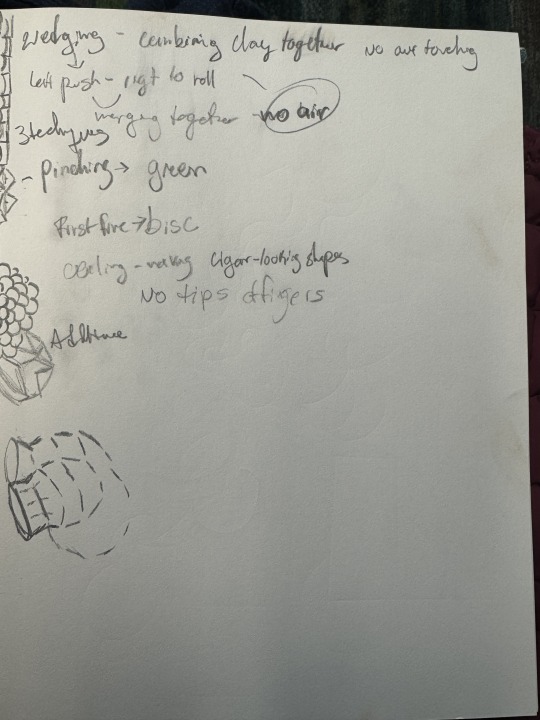 wedging - combining clay together No one touching
left push - right to roll
merging together - no air
3 techniques
- pinching → green
First fire → bisc
coeling - making cigar-looking shapes
No tips of figers
Additive